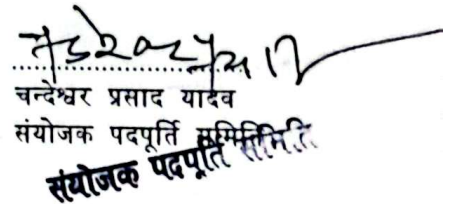 चन्देश्वर प्रसाद यादव
संयोजक पदपूर्ति समिति
संयोजक पदपूर्ति समिति